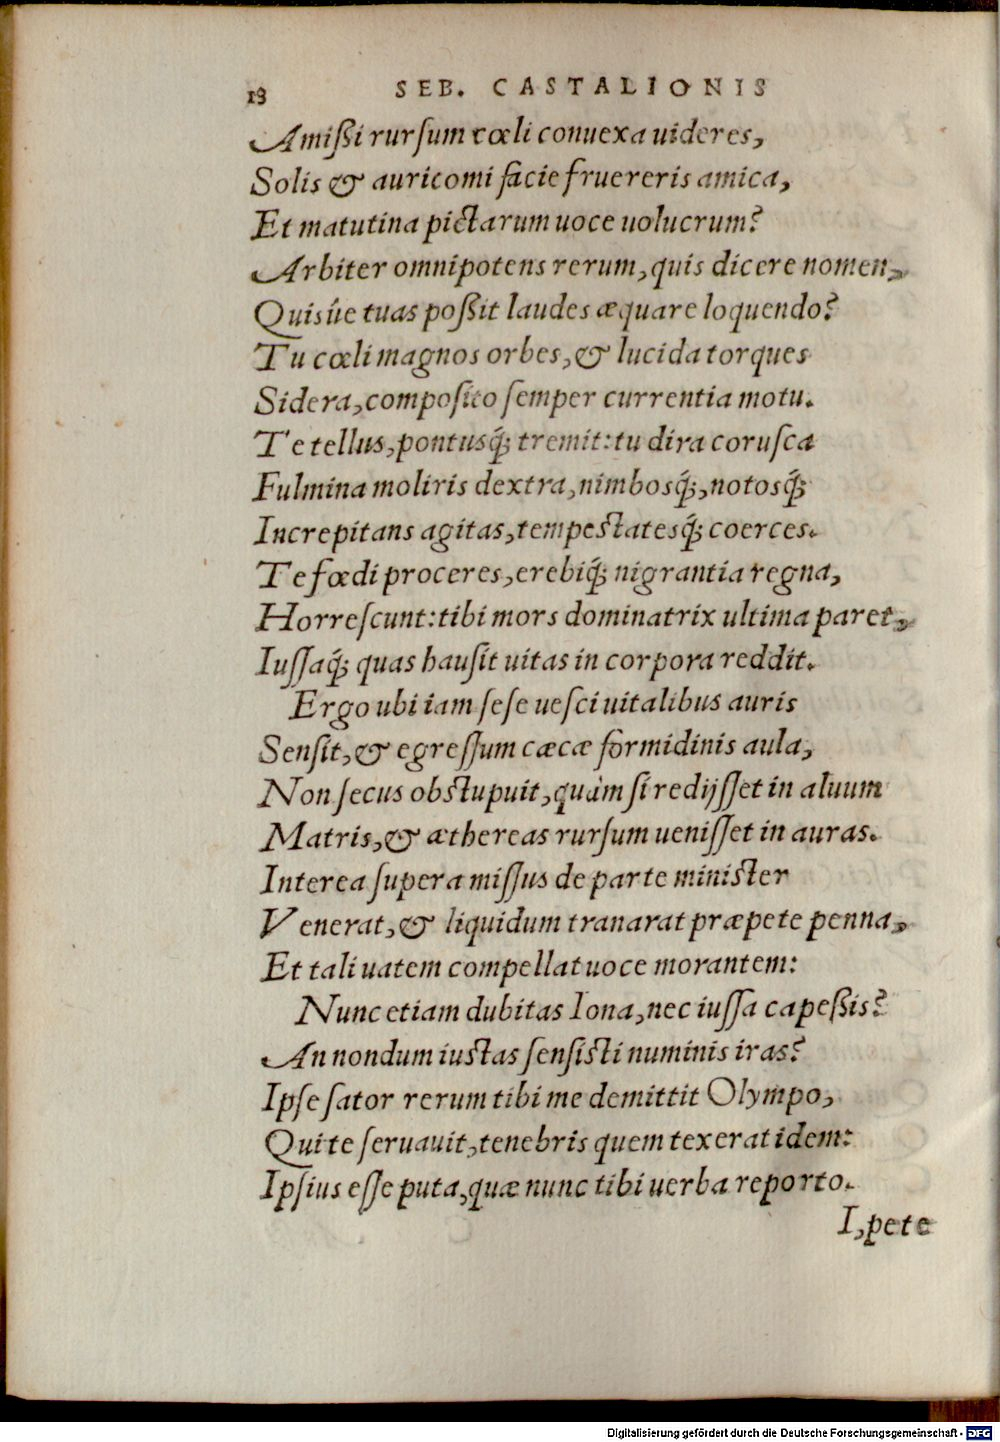 18 SEB. CASTALIONIS
Amißi rurſum cœli conuexa uideres,
Solis & auricomi facie fruereris amica,
Et matutina pictarum uoce uolucrum?
Arbiter omnipotens rerum, quis dicere nomen,
Quisúe tuas poßit laudes æquare loquendo?
Tu cœli magnos orbes, & lucida torques
Sidera, compoſito ſemper currentia motu.
Te tellus, pontusq́; tremit: tu dira coruſca
Fulmina moliris dextra, nimbosq́;, notosq́;
Increpitans agitas, tempeſtatesq́; coerces.
Te fœdi proceres, erebiq́; nigrantia regna,
Horreſcunt: tibi mors dominatrix ultima paret,
Iuſſaq́; quas hauſit uitas in corpora reddit.
Ergo ubi iam ſeſe ueſci uitalibus auris
Senſit, & egreſſum cæcæ formidinis aula,
Non ſecus obſtupuit, quàm ſi redijſſet in aluum
Matris, & æthereas rurſum ueniſſet in auras.
Interea ſupera miſſus de parte miniſter
Venerat, & liquidum tranarat præpete penna,
Et tali uatem compellat uoce morantem:
Nunc etiam dubitas Iona, nec iuſſa capeßis?
An nondum iuſtas ſenſiſti numinis iras?
Ipſe ſator rerum tibi me demittit Olympo,
Qui te ſeruauit, tenebris quem texerat idem:
Ipſius eſſe puta, quæ nunc tibi uerba reporto.
I, pete
Digitalisierung gefördert durch die Deutsche Forschungsgemeinschaft - DFG